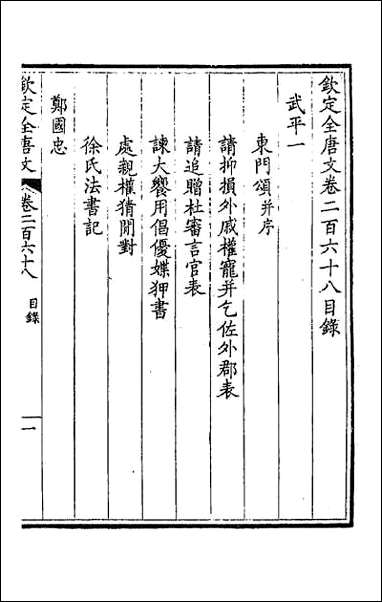 欽定全唐文卷二百六十八目錄
武平一
東門頌并序
請抑損外戚權寵并乞佐外郡表
請追贈杜審言官表
諫大饗用倡優媟狎書
處親權猜閒對
徐氏法書記
鄭國忠
欽定全唐文
卷二百六十八
目錄
一